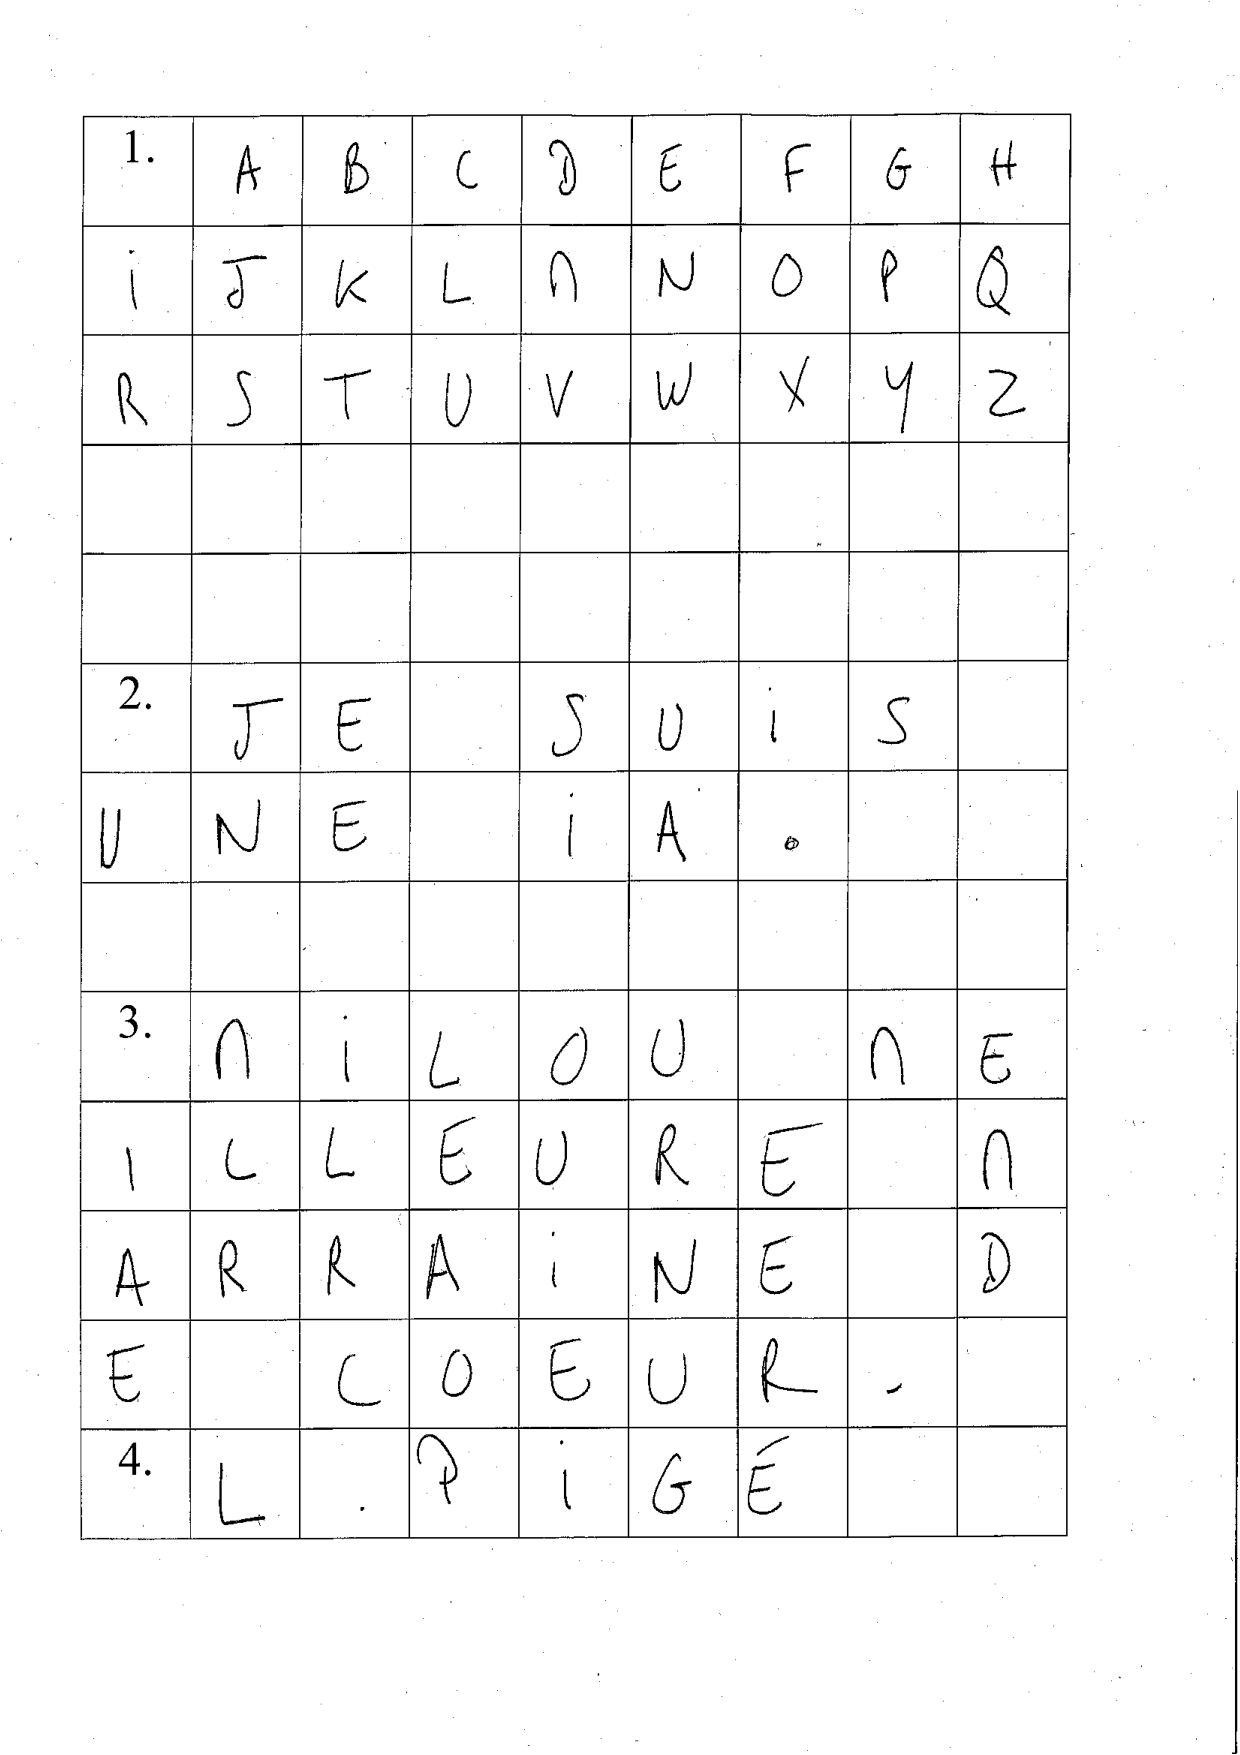 1. A B C D E F G H
i J K L M N O P Q
R S T U V W X Y Z
2. J E   S U i S
U N E   i A .
3. M i L O U   M E
I L L E U R E   M
A R R A i N E   D
E   C O E U R .
4. L . P i G É